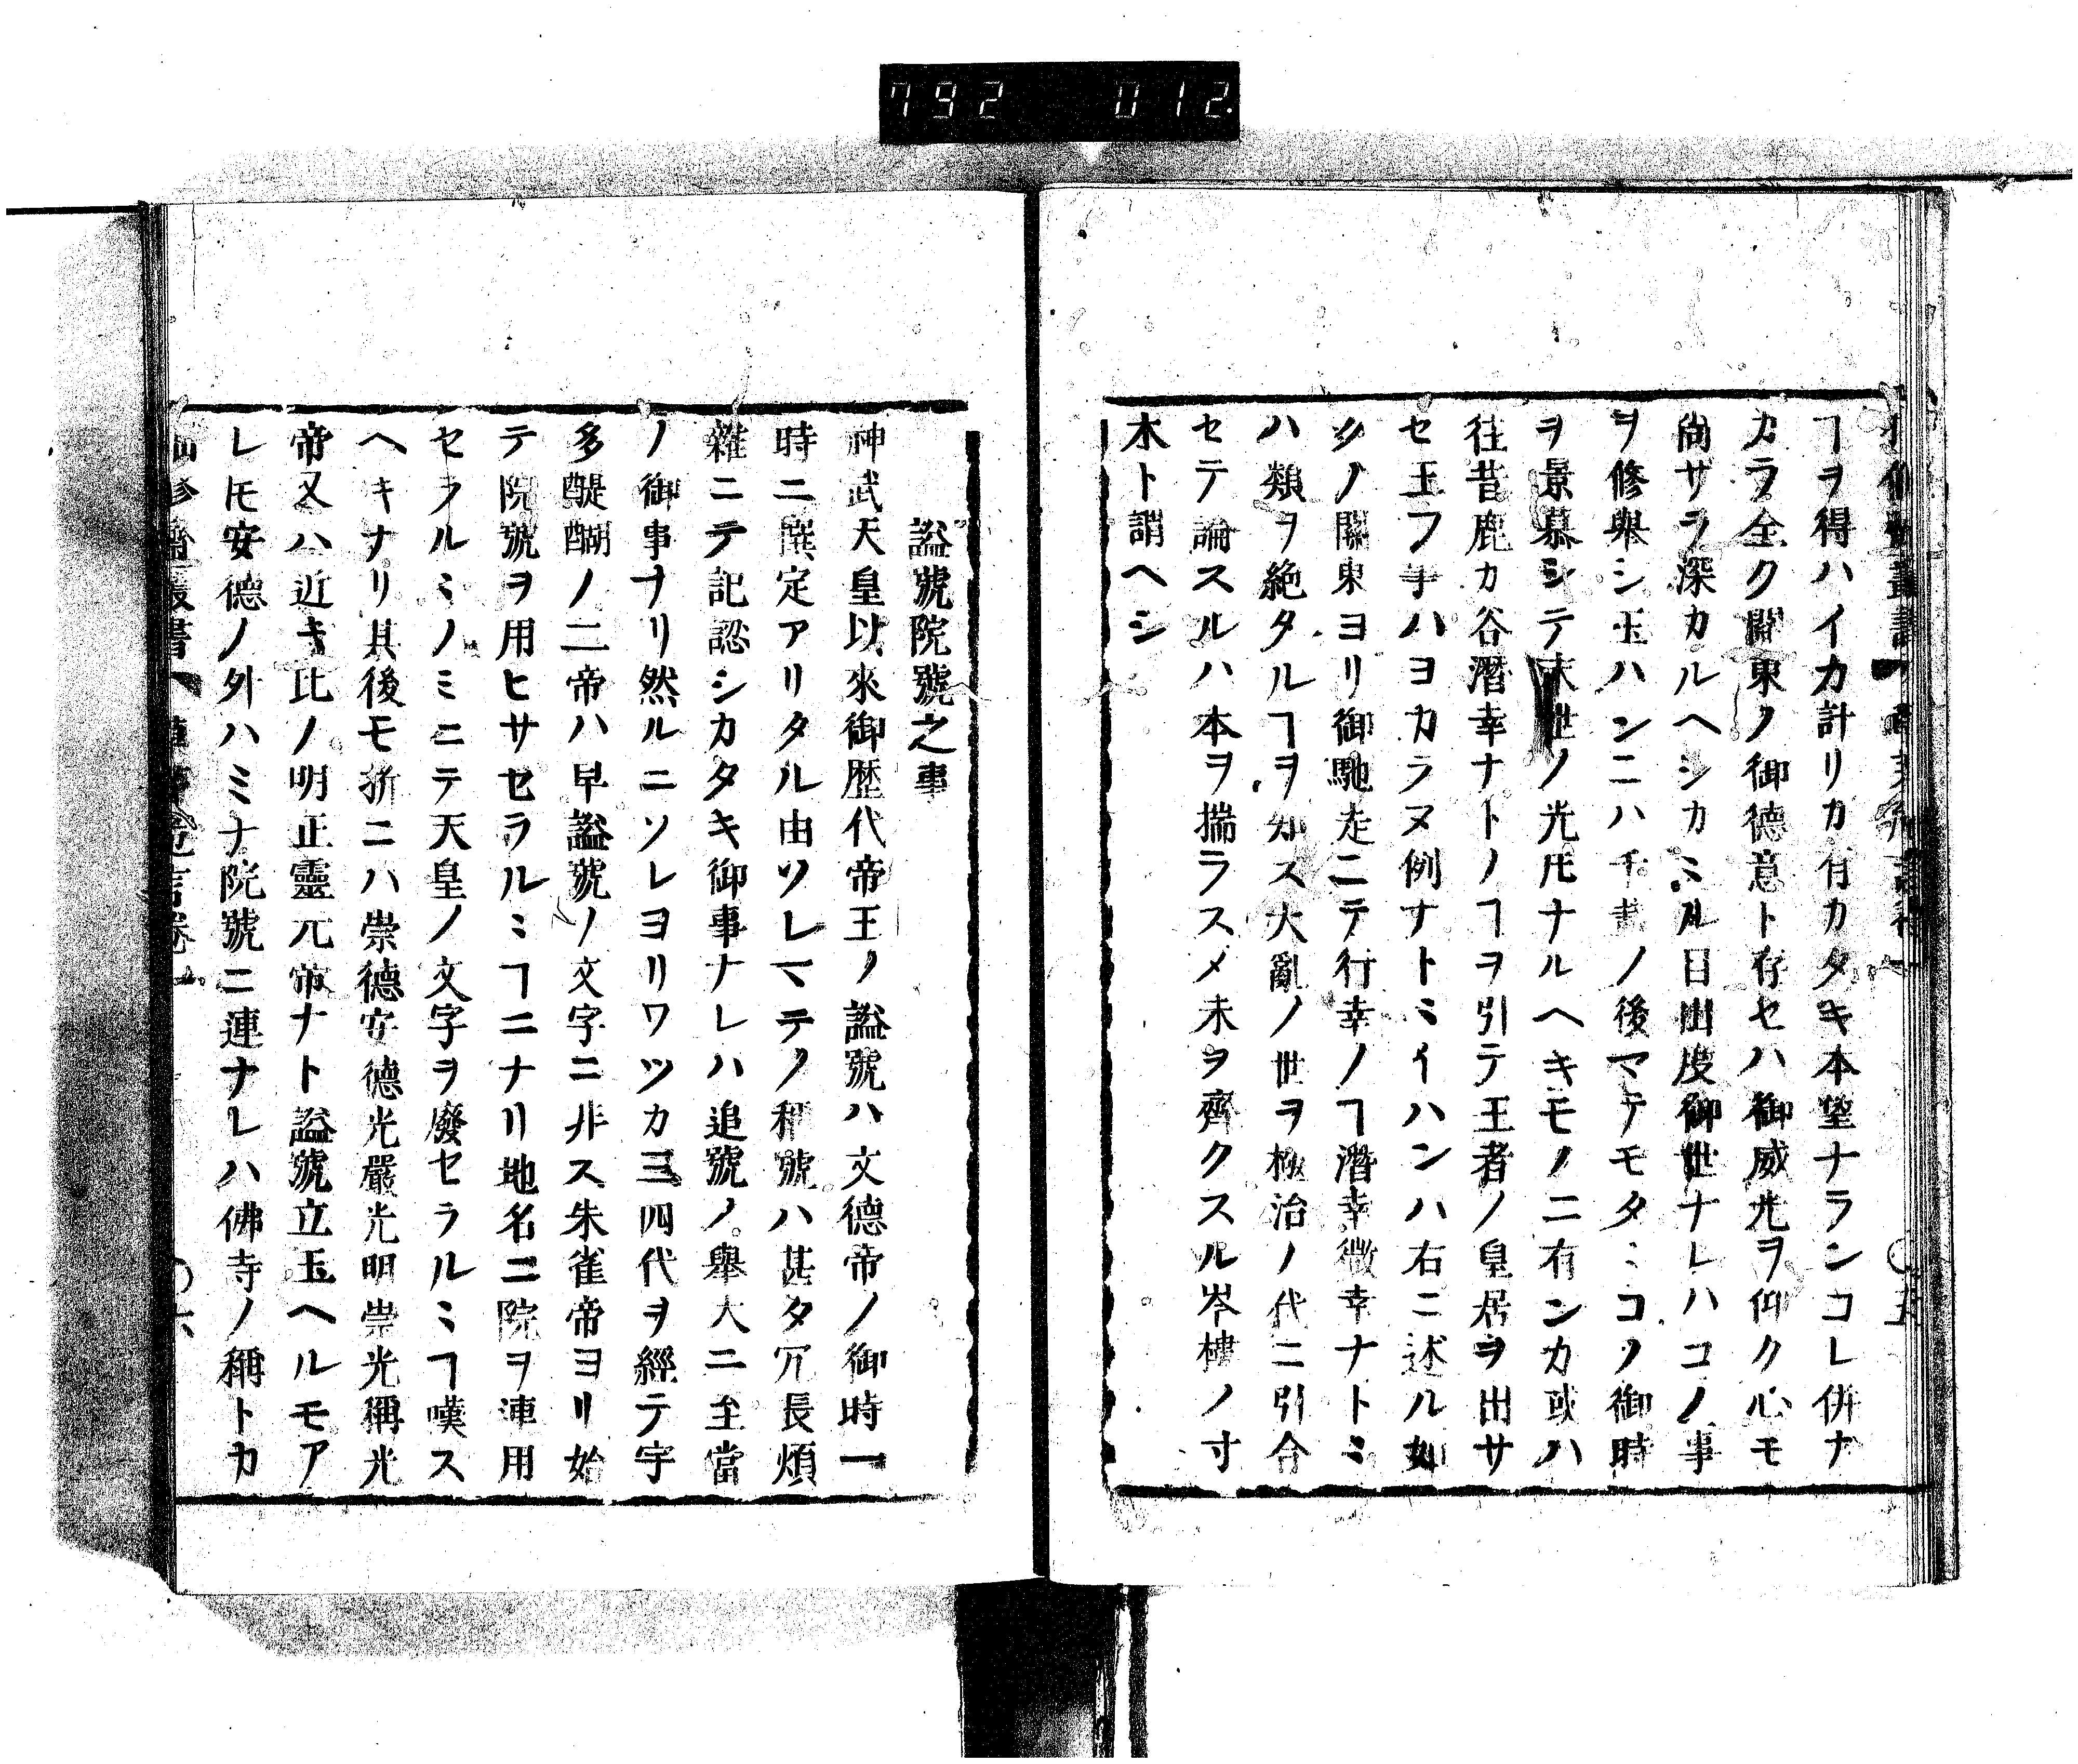 792 012
ヿヲ得ハイカ計リカ有カタキ本望ナランコレ併ナ
カラ全ク關東ノ御德意ト存セハ御威光ヲ仰ク心モ
尙サラ深カルヘシカヽル目出度御世ナレハコノ事
ヲ修舉シ玉ハンニハ千載ノ後マテモタヽコノ御時
ヲ景慕シテ末世ノ光𪜈ナルヘキモノニ有ンカ或ハ
往昔鹿カ谷潛幸ナトノヿヲ引テ王者ノ皇居ヲ出サ
セ玉フ事ハヨカラヌ例ナトミイハンハ右ニ述ル如
クノ關東ヨリ御馳走ニテ行幸ノヿ潛幸微幸ナトミ
ハ類ヲ絶タルヿヲ知ス大亂ノ世ヲ極治ノ代ニ引合
セテ論スルハ本ヲ揣ラスメ末ヲ齊クスル岑樓ノ寸
木ト謂ヘシ
謚號院號之事
神武天皇以來御歷代帝王ノ謚號ハ文德帝ノ御時一
時ニ撰定アリタル由ソレマテノ稱號ハ甚タ冗長煩
雜ニテ記認シカタキ御事ナレハ追號ノ舉大ニ至當
ノ御事ナリ然ルニソレヨリワツカ三四代ヲ經テ宇
多醍醐ノ二帝ハ早謚號ノ文字ニ非ス朱雀帝ヨリ始
テ院號ヲ用ヒサセラルヽヿニナリ地名ニ院ヲ連用
セラルヽノミニテ天皇ノ文字ヲ廢セラルヽヿ嘆ス
ヘキナリ其後モ折ニハ崇德安德光嚴光明崇光稱光
帝又ハ近キ比ノ明正靈元帝ナト謚號立玉ヘルモア
レ𪜈安德ノ外ハミナ院號ニ連ナレハ佛寺ノ稱トカ